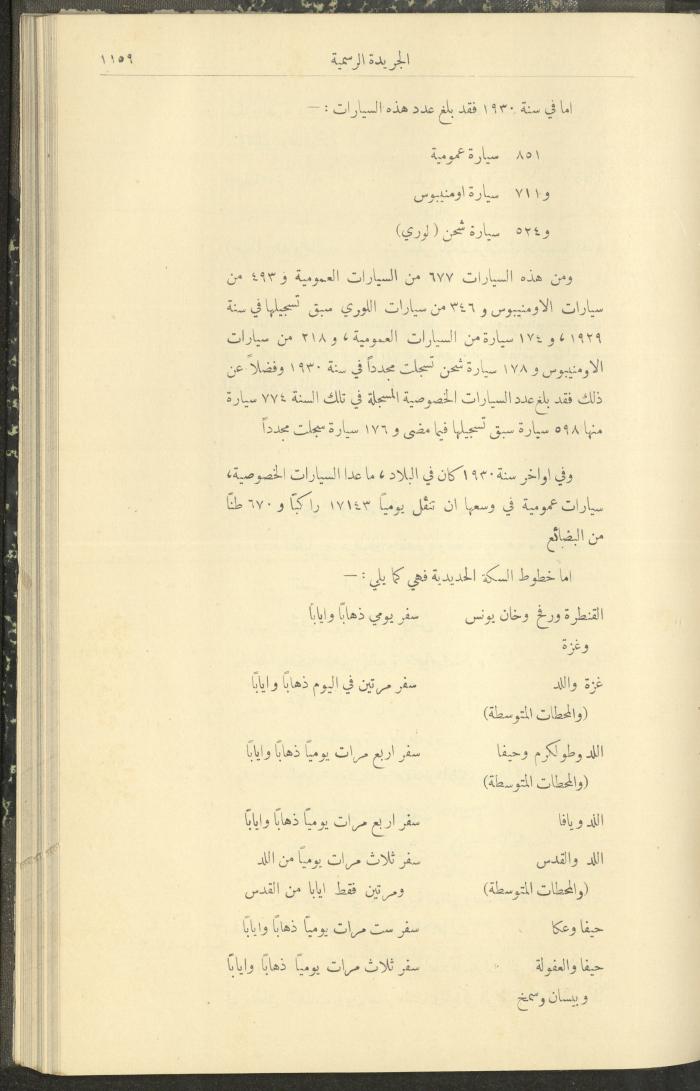 الجريدة الرسمية ١١٥٩
اما في سنة ١٩٣٠ فقد بلغ عدد هذه السيارات : —
٨٥١ سيارة عمومية
و٧١١ سيارة اومنيبوس
و٥٢٤ سيارة شحن (لوري)
ومن هذه السيارات ٦٧٧ من السيارات العمومية و ٤٩٣ من
سيارات الاومنيبوس و ٣٤٦ من سيارات اللوري سبق تسجيلها في سنة
١٩٢٩ ، و ١٧٤ سيارة من السيارات العمومية ، و ٢١٨ من سيارات
الاومنيبوس و ١٧٨ سيارة شحن تسجلت مجدداً في سنة ١٩٣٠ وفضلاً عن
ذلك فقد بلغ عدد السيارات الخصوصية المسجلة في تلك السنة ٧٧٤ سيارة
منها ٥٩٨ سيارة سبق تسجيلها فيما مضى و ١٧٦ سيارة سجلت مجدداً
وفي اواخر سنة ١٩٣٠ كان في البلاد ، ما عدا السيارات الخصوصية،
سيارات عمومية في وسعها ان تنقل يومياً ١٧١٤٣ راكباً و ٦٧٠ طناً
من البضائع
اما خطوط السكة الحديدية فهي كما يلي : —
القنطرة ورفح وخان يونس سفر يومي ذهاباً واياباً
وغزة
غزة واللد سفر مرتين في اليوم ذهاباً واياباً
(والمحطات المتوسطة)
اللد وطولكرم وحيفا سفر اربع مرات يومياً ذهاباً واياباً
(والمحطات المتوسطة)
اللد ويافا سفر اربع مرات يومياً ذهاباً واياباً
اللد والقدس سفر ثلاث مرات يومياً من اللد
(والمحطات المتوسطة) ومرتين فقط ايابا من القدس
حيفا وعكا سفر ست مرات يومياً ذهاباً واياباً
حيفا والعفولة سفر ثلاث مرات يومياً ذهاباً واياباً
وبيسان وسمخ